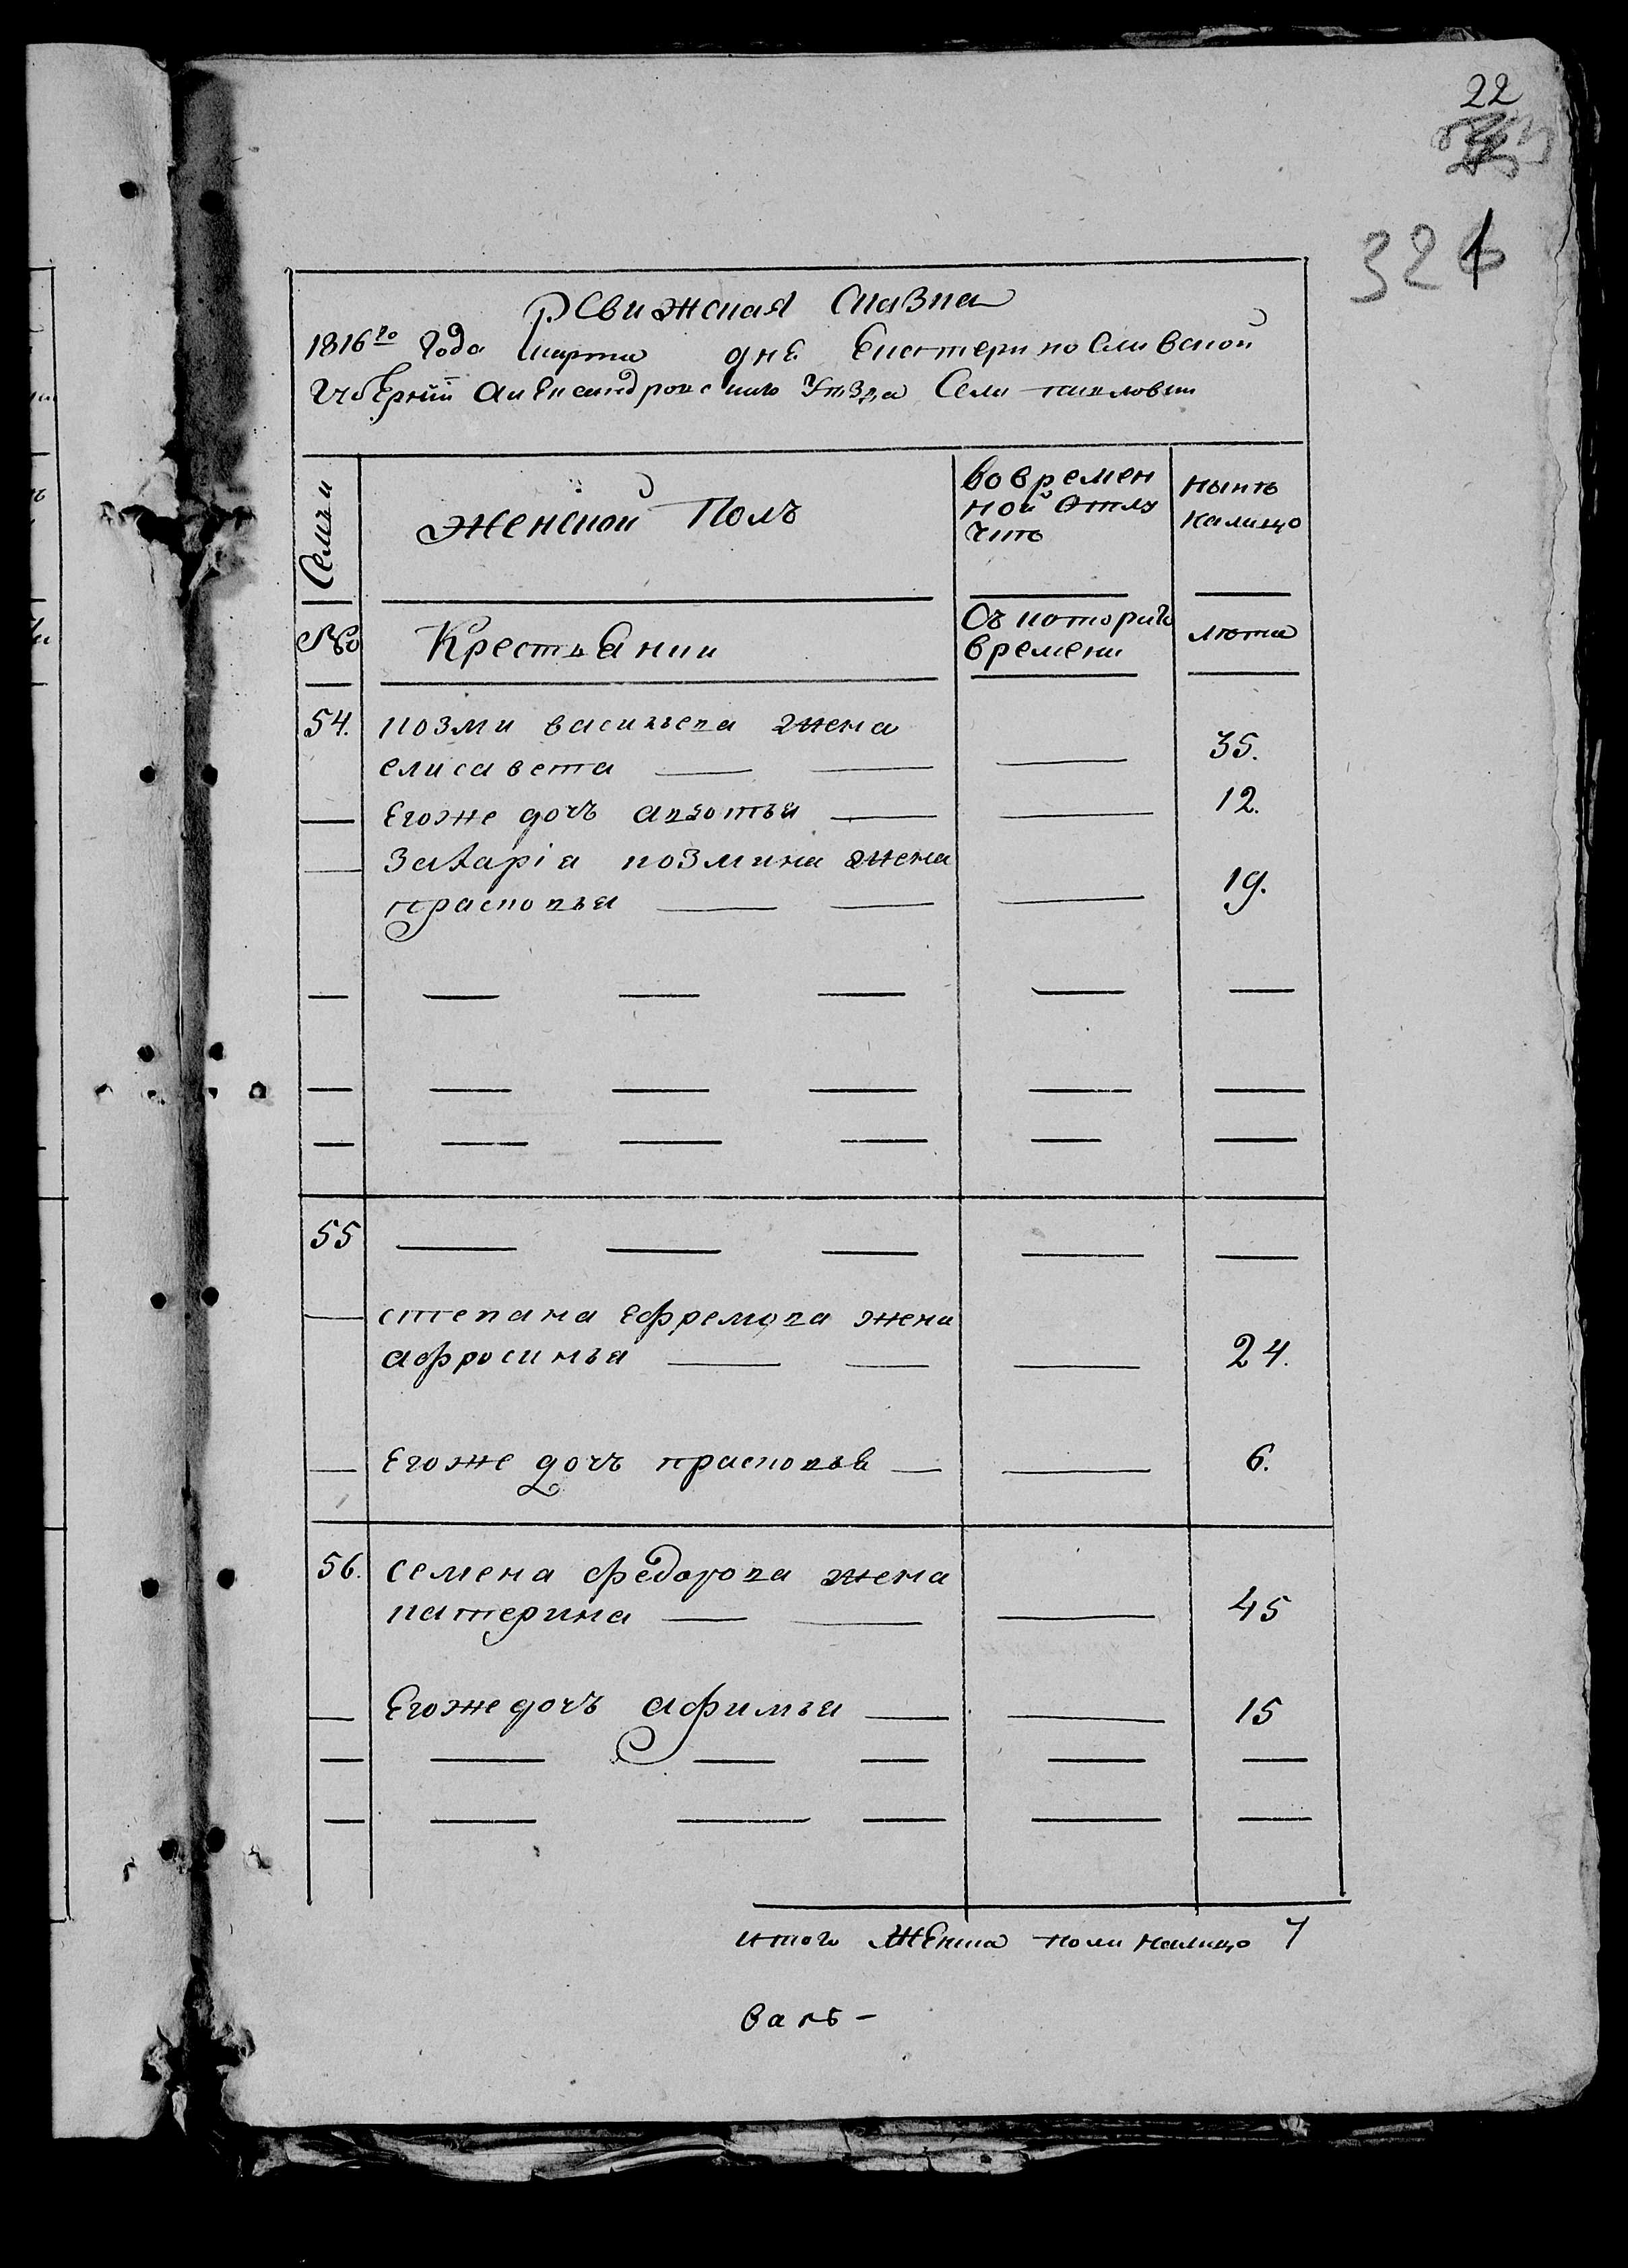 22
326
Ревижская сказка
1816го Года марта дня Екатеринославской
Губернии Александровского Уѣзда Села павловки
Семьи
Женской Полъ
Во времен
ной Отлу
чкѣ
нынѣ
налицо
№
Крестьянки
Съ котораго
времени
лѣта
54. козми васильева жена
елисавета 35.
Егоже дочъ авдотья 12.
Захаріа козмина жена
прасковья 19.
55
степана Ефремова жена
афросинья 24.
Егоже дочъ прасковья 6.
56. семена федорова жена
катерина 45
Егоже дочъ афимья 15
итого Женска пола налицо 7